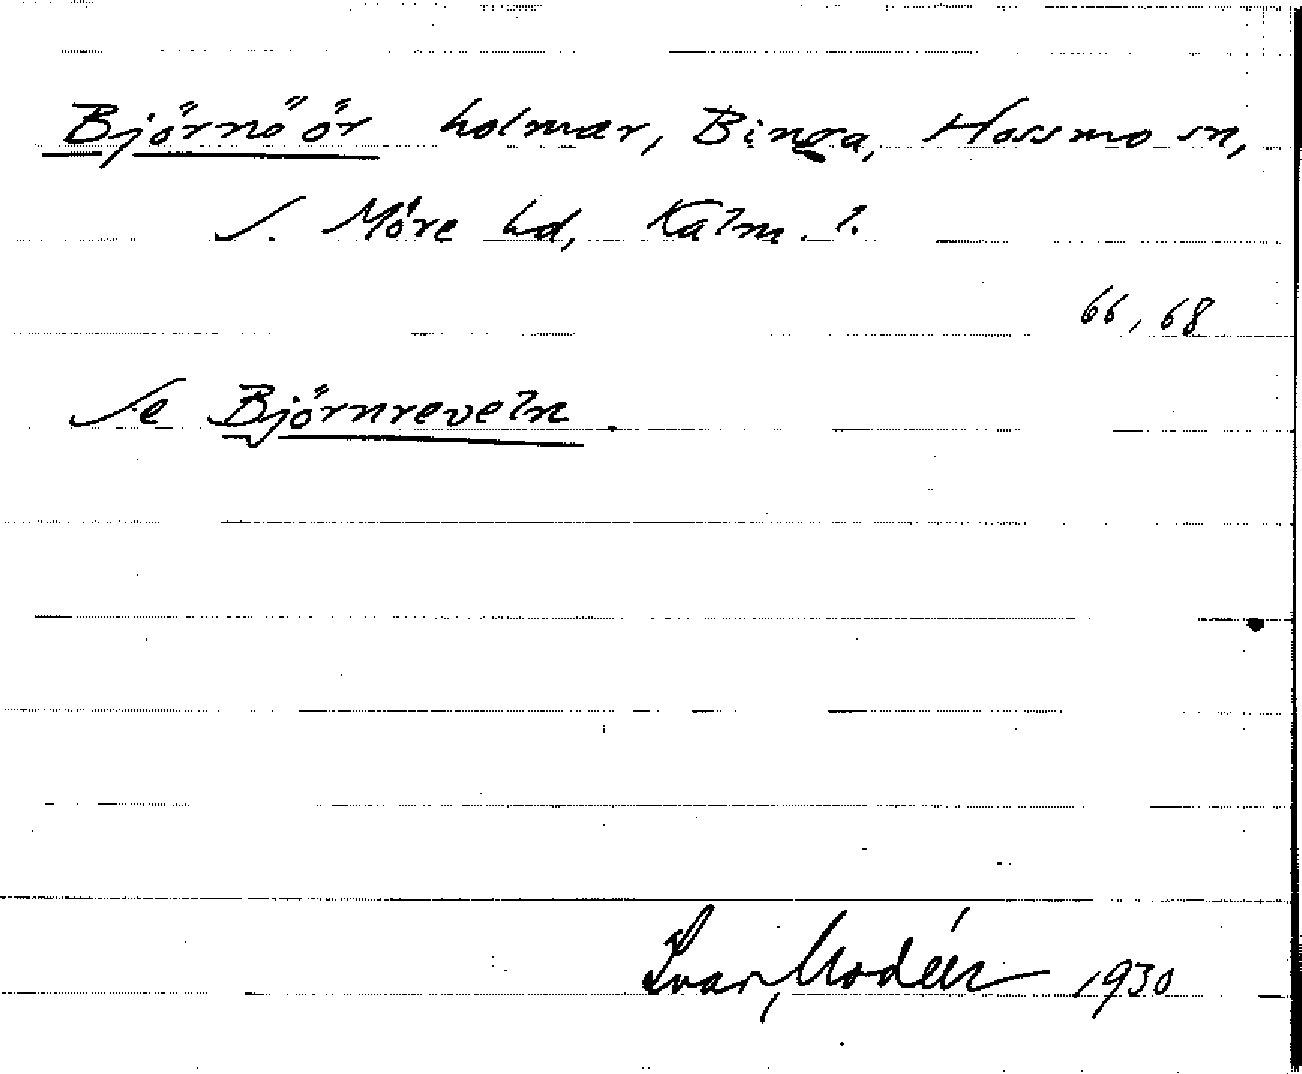 Björnöör holmar, Binga, Hossmo sn,
S. Möre hd, Kalm. l.
66, 68
Se Björnreveln.
Ivar Modéer 1930